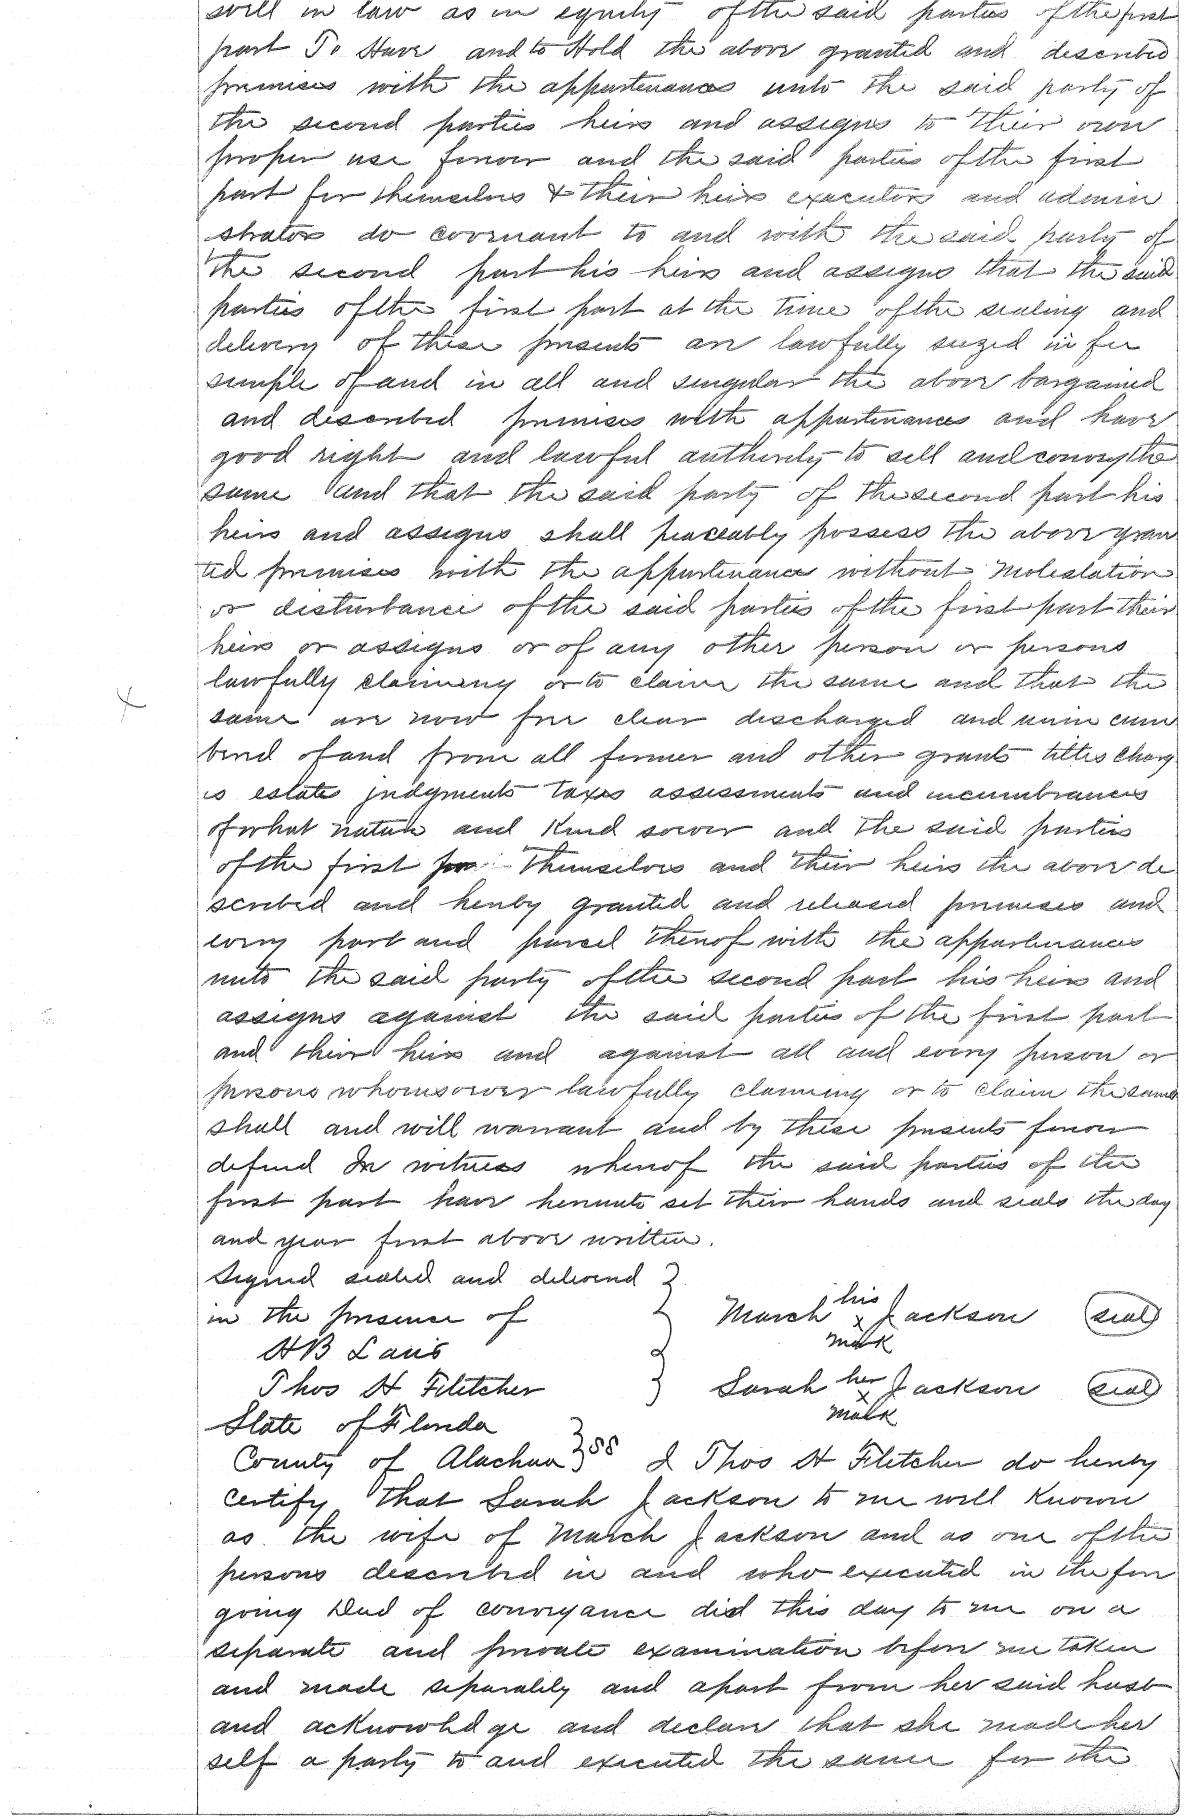 well in law as in equity of the said parties of the first
part To Have and to Hold the above granted and described
premises with the appurtenances unto the said party of
the second parties heirs and assigns to their own
proper use forever and the said parties of the first
part for themselves & their heirs executors and admin
strators do covenant to and with the said party of
the second part his heirs and assigns that the said
parties of the first part at the time of the sealing and
delivery of these presents are lawfully seized in fee
simple of and in all and singular the above bargained
and described premises with appurtenances and have
good right and lawful authority to sell and convey the
same and that the said party of the second part his
heirs and assigns shall peaceably possess the above gran
ted premises with the appurtenances without molestation
or disturbance of the said parties of the first part their
heirs or assigns or of any other person or persons
lawfully claiming or to claim the same and that the
x
same are now free clear discharged and unin cum
bered of and from all former and other grants titles charg
es estates judgments taxes assessments and incumbrances
of what nature and Kind soever and the said parties
of the first themselves and their heirs the above de
scribed and hereby granted and released premises and
every part and parcel thereof with the appurtenances
unto the said party of the second part his heirs and
assigns against the said parties of the first part
and their heirs and against all and every person or
persons whomsoever lawfully claiming or to claim the same
shall and will warrant and by these presents forever
defend In witness whereof the said parties of the
first part have hereunto set their hands and seals the day
and year first above written.
Signed sealed and delivered }
in the presence of } March his x mark Jackson (seal)
H B
Thos H Fletcher } Sarah her x mark Jackson (seal)
State of Florida
County of Alachua } SS I Thos H Fletcher do hereby
certify that Sarah Jackson to me well known
as the wife of March Jackson and as one of the
persons described in and who executed in the fore
going Deed of conveyance did this day to me on a
separate and private examination before me taken
and made separately and apart from her said husb
and acknowledge and declare that she made her
self a party to and executed the same for the